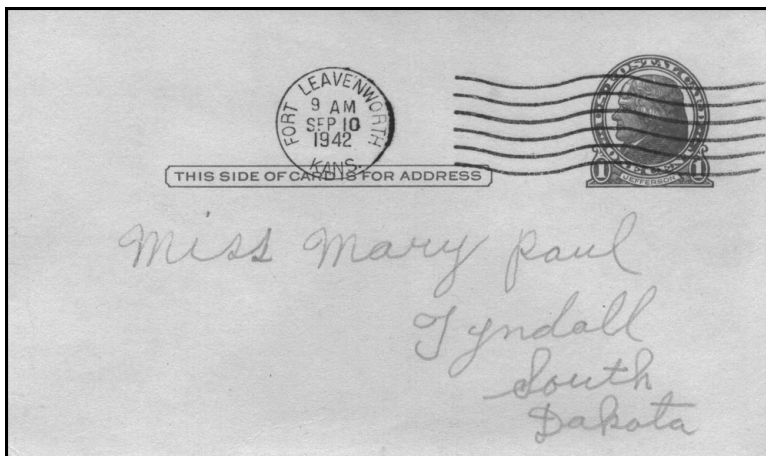 FORT LEAVENWORTH
9 AM
SEP 10
1942
KANS.
U.S. POSTAL CARD
ONE CENT
1 JEFFERSON 1
THIS SIDE OF CARD IS FOR ADDRESS
Miss Mary Paul
Tyndall
South
Dakota